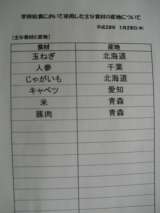 学校給食において使用した主な食材の産地について
平成28年 1月29日(木)
【主な食材の産地】
食材 産地
玉ねぎ 北海道
人参 千葉
じゃがいも 北海道
キャベツ 愛知
米 青森
豚肉 青森